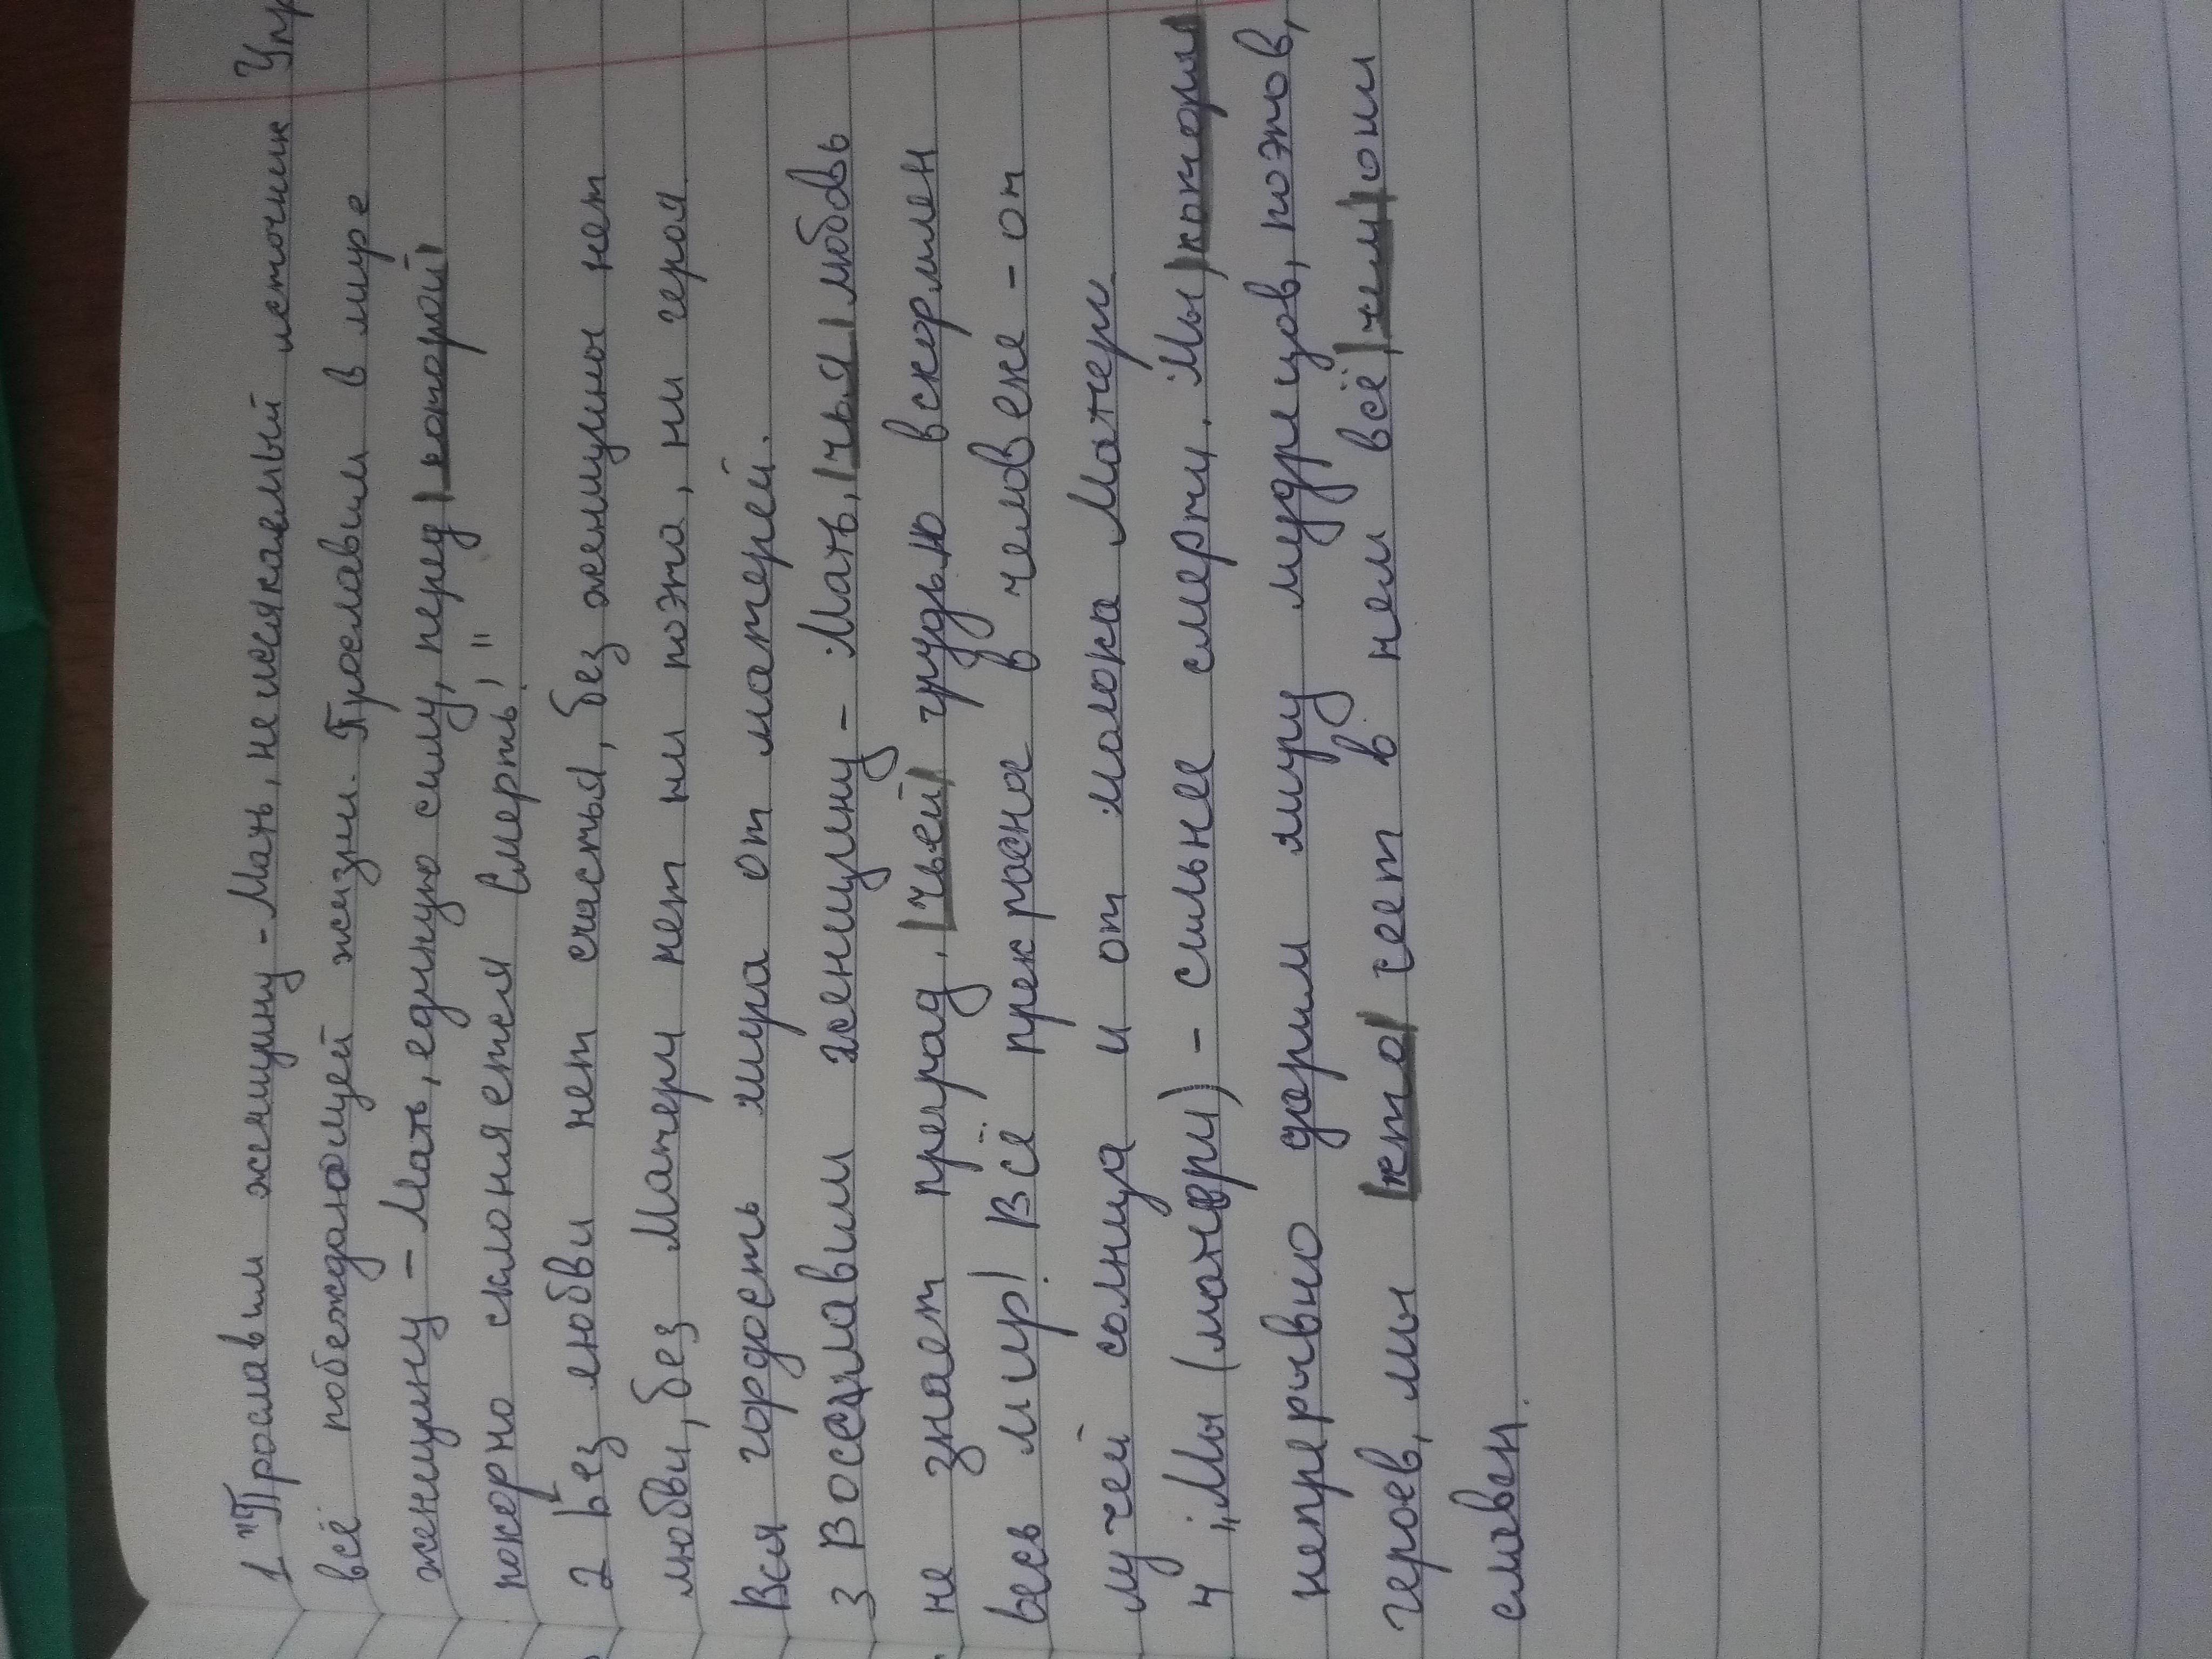 1 "Прославим женщину - Мать, неиссякаемый источник Упр
всё побеждающей жизни. Прославим в мире
женщину - Мать, единую силу, перед которой
покорно склоняется Смерть!"
2 Без любви нет счастья, без женщины нет
любви, без Матери нет ни поэта, ни героя.
Вся гордость мира от матерей.
3 Восславим женщину - Мать, чья любовь
не знает преград, чьей грудью вскормлен
весь мир! Всё прекрасное в человеке - от
лучей солнца и от молока Матери
4 „Мы (матери) - сильнее смерти. Мы которые
непрерывно дарим миру мудрецов, поэтов,
героев, мы кто сеет в нём всё, чем он
славен.